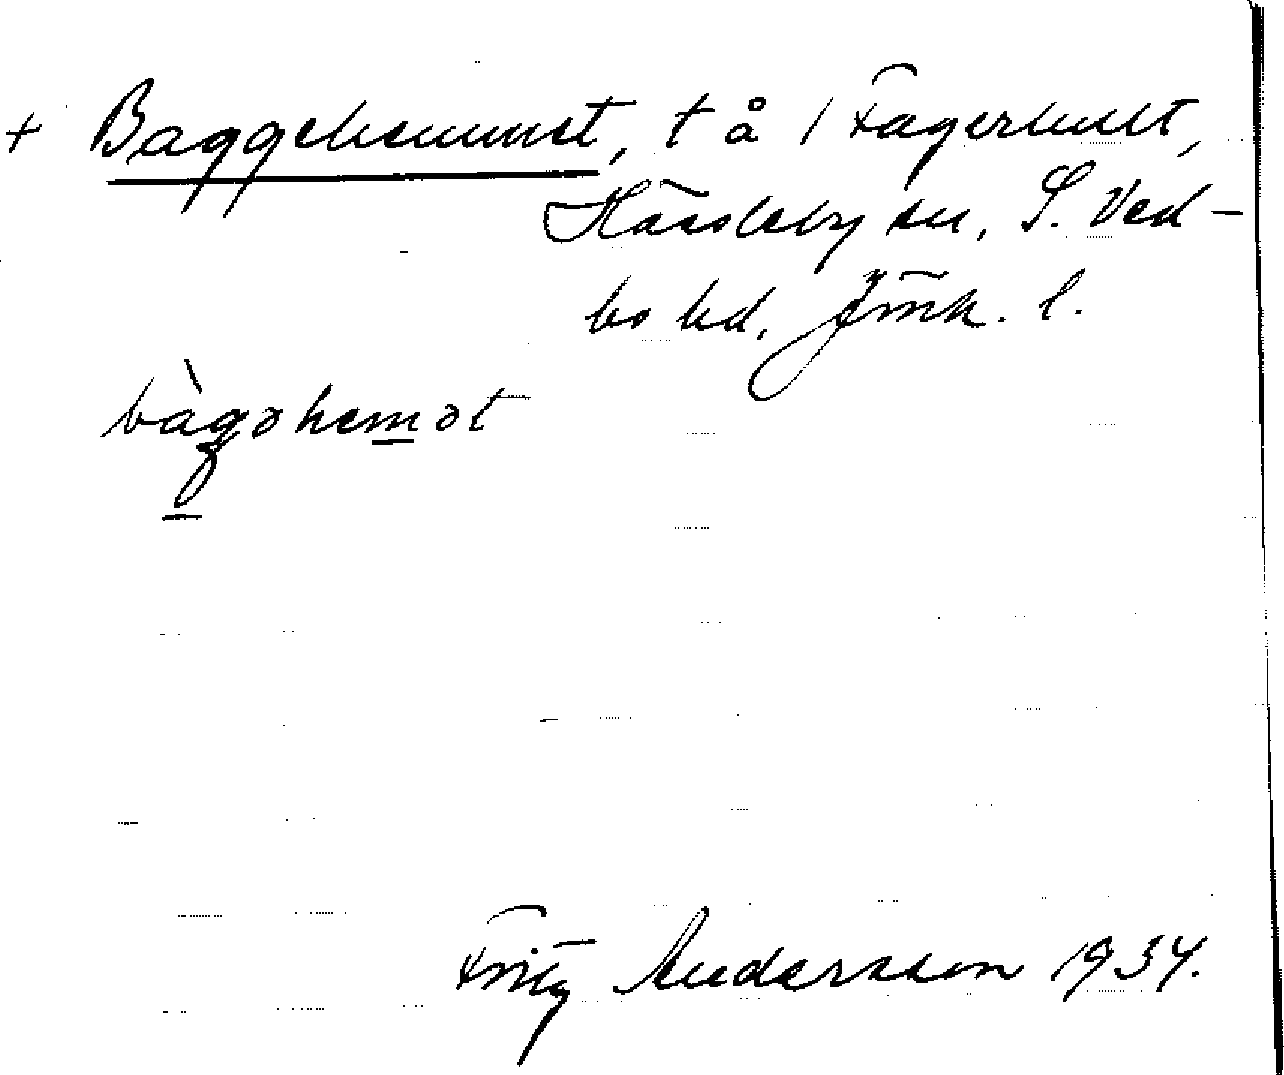 + Baggehemmet, t å 1 Fagerhult,
Hässleby sn, S. Ved-
bo hd, Jönk. l.
bàgəhemət
Fritz Andersson 1934.